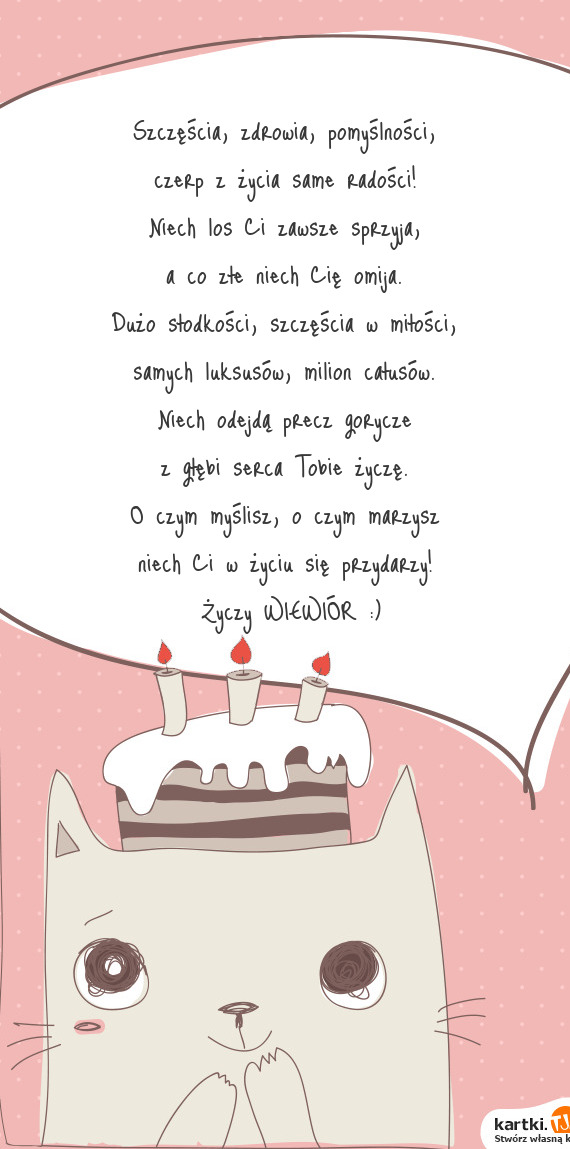 Szczęścia, zdrowia, pomyślności,
czerp z życia same radości!
Niech los Ci zawsze sprzyja,
a co złe niech Cię omija.
Dużo słodkości, szczęścia w miłości,
samych luksusów, milion całusów.
Niech odejdą precz gorycze
z głębi serca Tobie życzę.
O czym myślisz, o czym marzysz
niech Ci w życiu się przydarzy!
Życzy WIEWIÓR :)
kartki.TJ
Stwórz własną k